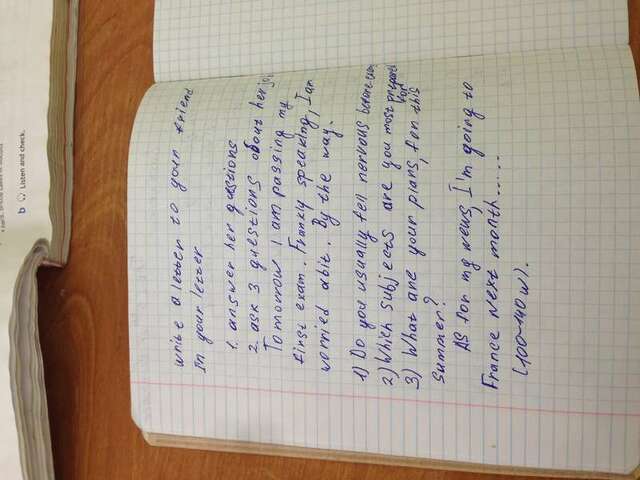 b Listen and check.
write a letter to your friend
In your letter
1. answer her qustions
2. ask 3 questions about her job
Tomorrow I am passing my
first exam. Frankly speaking, I am
worried abit. By the way.
1) Do you usually fell nervous before exam
2) Which subjects are you most prepared
for
3) What are your plans, for this
summer?
As for my news, I'm going to
France next month.....
(100-140 w).